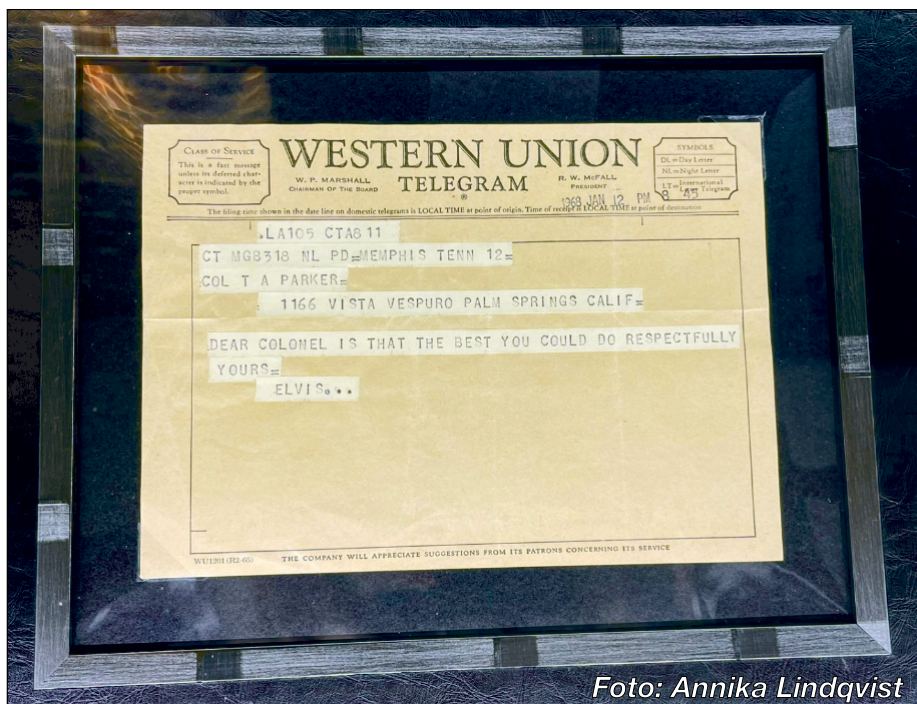 CLASS OF SERVICE
This is a fast message
unless its deferred char-
acter is indicated by the
proper symbol.
WESTERN UNION
TELEGRAM
W. P. MARSHALL
CHAIRMAN OF THE BOARD
R. W. McFALL
PRESIDENT
®
SYMBOLS
DL=Day Letter
NL=Night Letter
LT=International Letter Telegram
1968 JAN 12 PM 8 45
The filing time shown in the date line on domestic telegrams is LOCAL TIME at point of origin. Time of receipt is LOCAL TIME at point of destination
.LA105 CTA8 11
CT MGB318 NL PD=MEMPHIS TENN 12=
COL T A PARKER=
1166 VISTA VESPURO PALM SPRINGS CALIF=
DEAR COLONEL IS THAT THE BEST YOU COULD DO RESPECTFULLY
YOURS=
ELVIS...
WU1201 (R2-65)
THE COMPANY WILL APPRECIATE SUGGESTIONS FROM ITS PATRONS CONCERNING ITS SERVICE
Foto: Annika Lindqvist